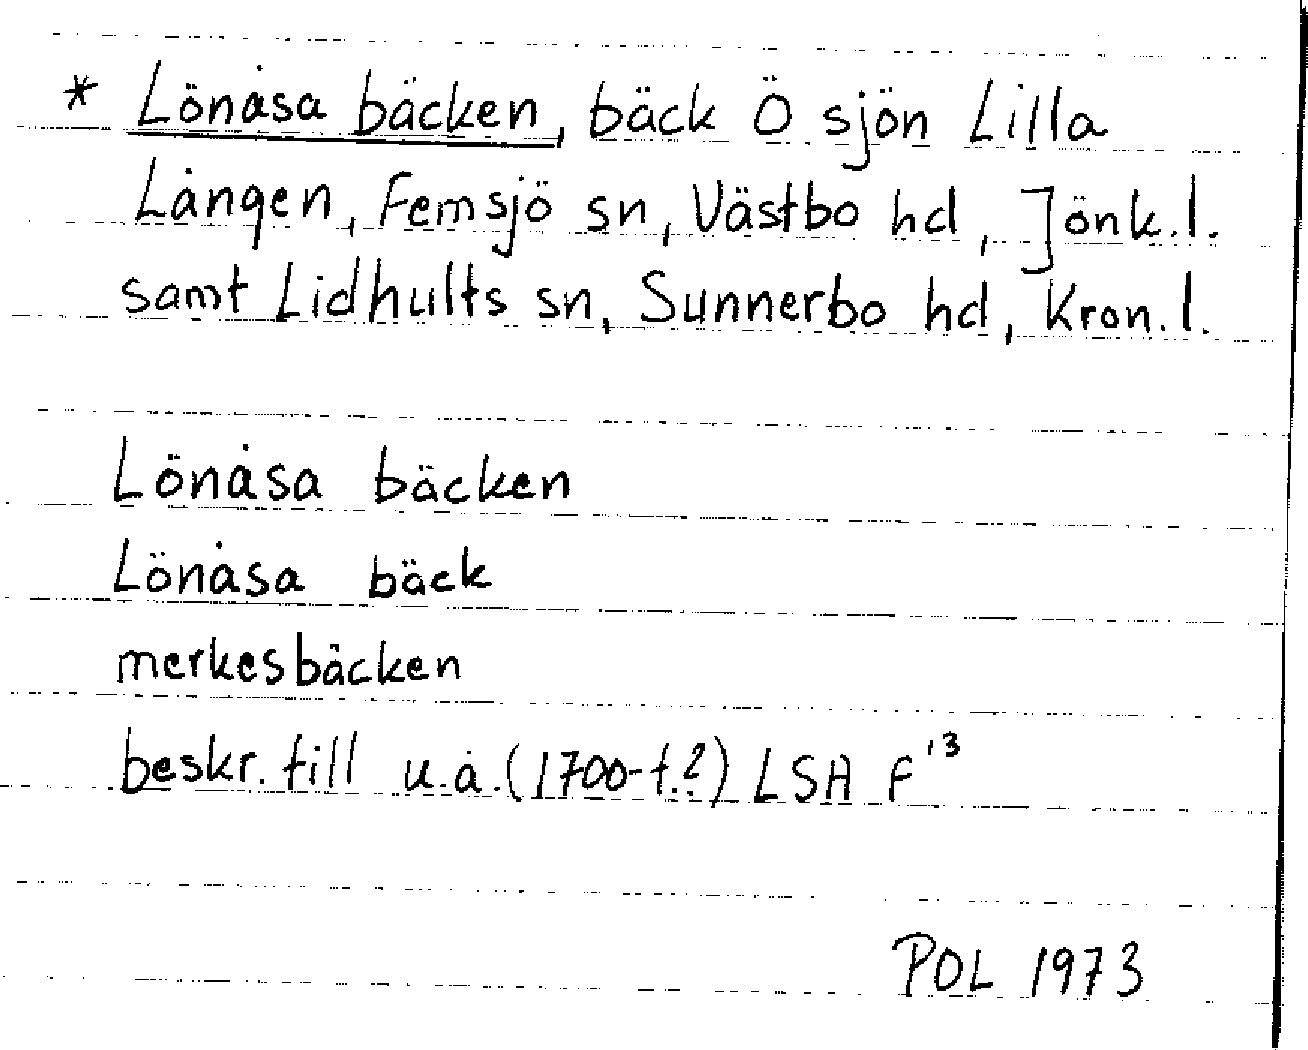 * Lönåsa bäcken, bäck Ö sjön Lilla
Lången, Femsjö sn, Västbo hd, Jönk.l.
samt Lidhults sn, Sunnerbo hd, Kron.l.
Lönåsa bäcken
Lönåsa bäck
merkesbäcken
beskr. till u.å. (1700-t.?) LSA F¹³
POL 1973